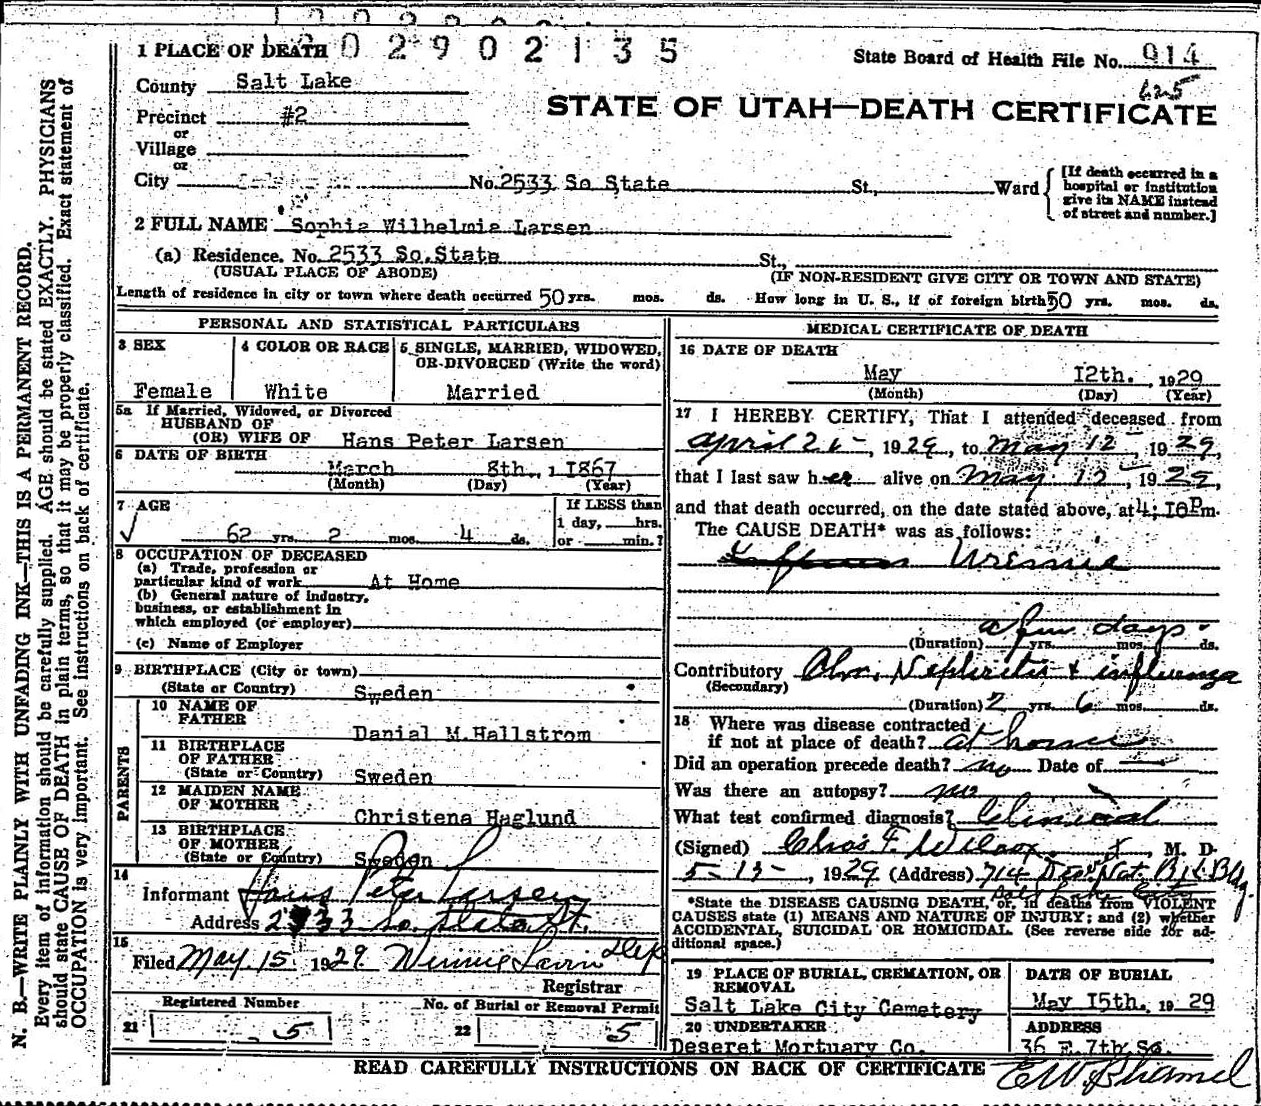 1 PLACE OF DEATH 1 0 2 9 0 2 1 3 5
State Board of Health File No. 914
625
County Salt Lake
STATE OF UTAH—DEATH CERTIFICATE
Precinct #2
or
Village
or
City No. 2533 So State St., Ward [If death occurred in a hospital or institution give its NAME instead of street and number.]
2 FULL NAME Sophia Wilhelmia Larsen
(a) Residence. No. 2533 So.State St.,
(USUAL PLACE OF ABODE) (IF NON-RESIDENT GIVE CITY OR TOWN AND STATE)
Length of residence in city or town where death occurred 50 yrs. mos. ds. How long in U. S., if of foreign birth 50 yrs. mos. ds.
PERSONAL AND STATISTICAL PARTICULARS
3 SEX
Female
4 COLOR OR RACE
White
5 SINGLE, MARRIED, WIDOWED,
OR DIVORCED (Write the word)
Married
5a If Married, Widowed, or Divorced
HUSBAND OF
(OR) WIFE OF Hans Peter Larsen
6 DATE OF BIRTH
March 8th., 1867
(Month) (Day) (Year)
7 AGE
62 yrs. 2 mos. 4 ds.
If LESS than
1 day, hrs.
or min.?
8 OCCUPATION OF DECEASED
(a) Trade, profession or
particular kind of work At Home
(b) General nature of industry,
business, or establishment in
which employed (or employer)
(c) Name of Employer
9 BIRTHPLACE (City or town)
(State or Country) Sweden
PARENTS
10 NAME OF
FATHER Danial M.Hallstrom
11 BIRTHPLACE
OF FATHER
(State or Country) Sweden
12 MAIDEN NAME
OF MOTHER Christena Haglund
13 BIRTHPLACE
OF MOTHER
(State or Country) Sweden
14
Informant Hans Peter Larsen
Address 2533 So. State St.
15
Filed May. 15. 1929. Winnie Dep
Registrar
Registered Number No. of Burial or Removal Permit
21 5 22 5
MEDICAL CERTIFICATE OF DEATH
16 DATE OF DEATH
May 12th. , 1929
(Month) (Day) (Year)
17 I HEREBY CERTIFY, That I attended deceased from
April , 1929, to May 12 , 1929,
that I last saw her alive on May. 12 , 1929,
and that death occurred, on the date stated above, at 4;10Pm.
The CAUSE DEATH* was as follows:
Uremia
a few days
(Duration) yrs. mos. ds.
Contributory Chr. Nephritis & influenza
(Secondary)
(Duration) 2 yrs. 6 mos. ds.
18 Where was disease contracted
if not at place of death? at home
Did an operation precede death? no Date of
Was there an autopsy? no
What test confirmed diagnosis? Clinical
(Signed) Chas. F. Wilcox M. D.
5-13- , 1929 (Address) 714 Des. Nat. Bk. Bldg.
Salt Lake City
*State the DISEASE CAUSING DEATH, or, in deaths from VIOLENT
CAUSES state (1) MEANS AND NATURE OF INJURY; and (2) whether
ACCIDENTAL, SUICIDAL OR HOMICIDAL. (See reverse side for ad-
ditional space.)
19 PLACE OF BURIAL, CREMATION, OR
REMOVAL
Salt Lake City Cemetery
DATE OF BURIAL
May 15th. 1929
20 UNDERTAKER
Deseret Mortuary Co.
ADDRESS
36 E. 7th So.
READ CAREFULLY INSTRUCTIONS ON BACK OF CERTIFICATE
N. B.—WRITE PLAINLY WITH UNFADING INK—THIS IS A PERMANENT RECORD.
Every item of information should be carefully supplied. AGE should be stated EXACTLY. PHYSICIANS
should state CAUSE OF DEATH in plain terms, so that it may be properly classified. Exact statement of
OCCUPATION is very important. See instructions on back of certificate.